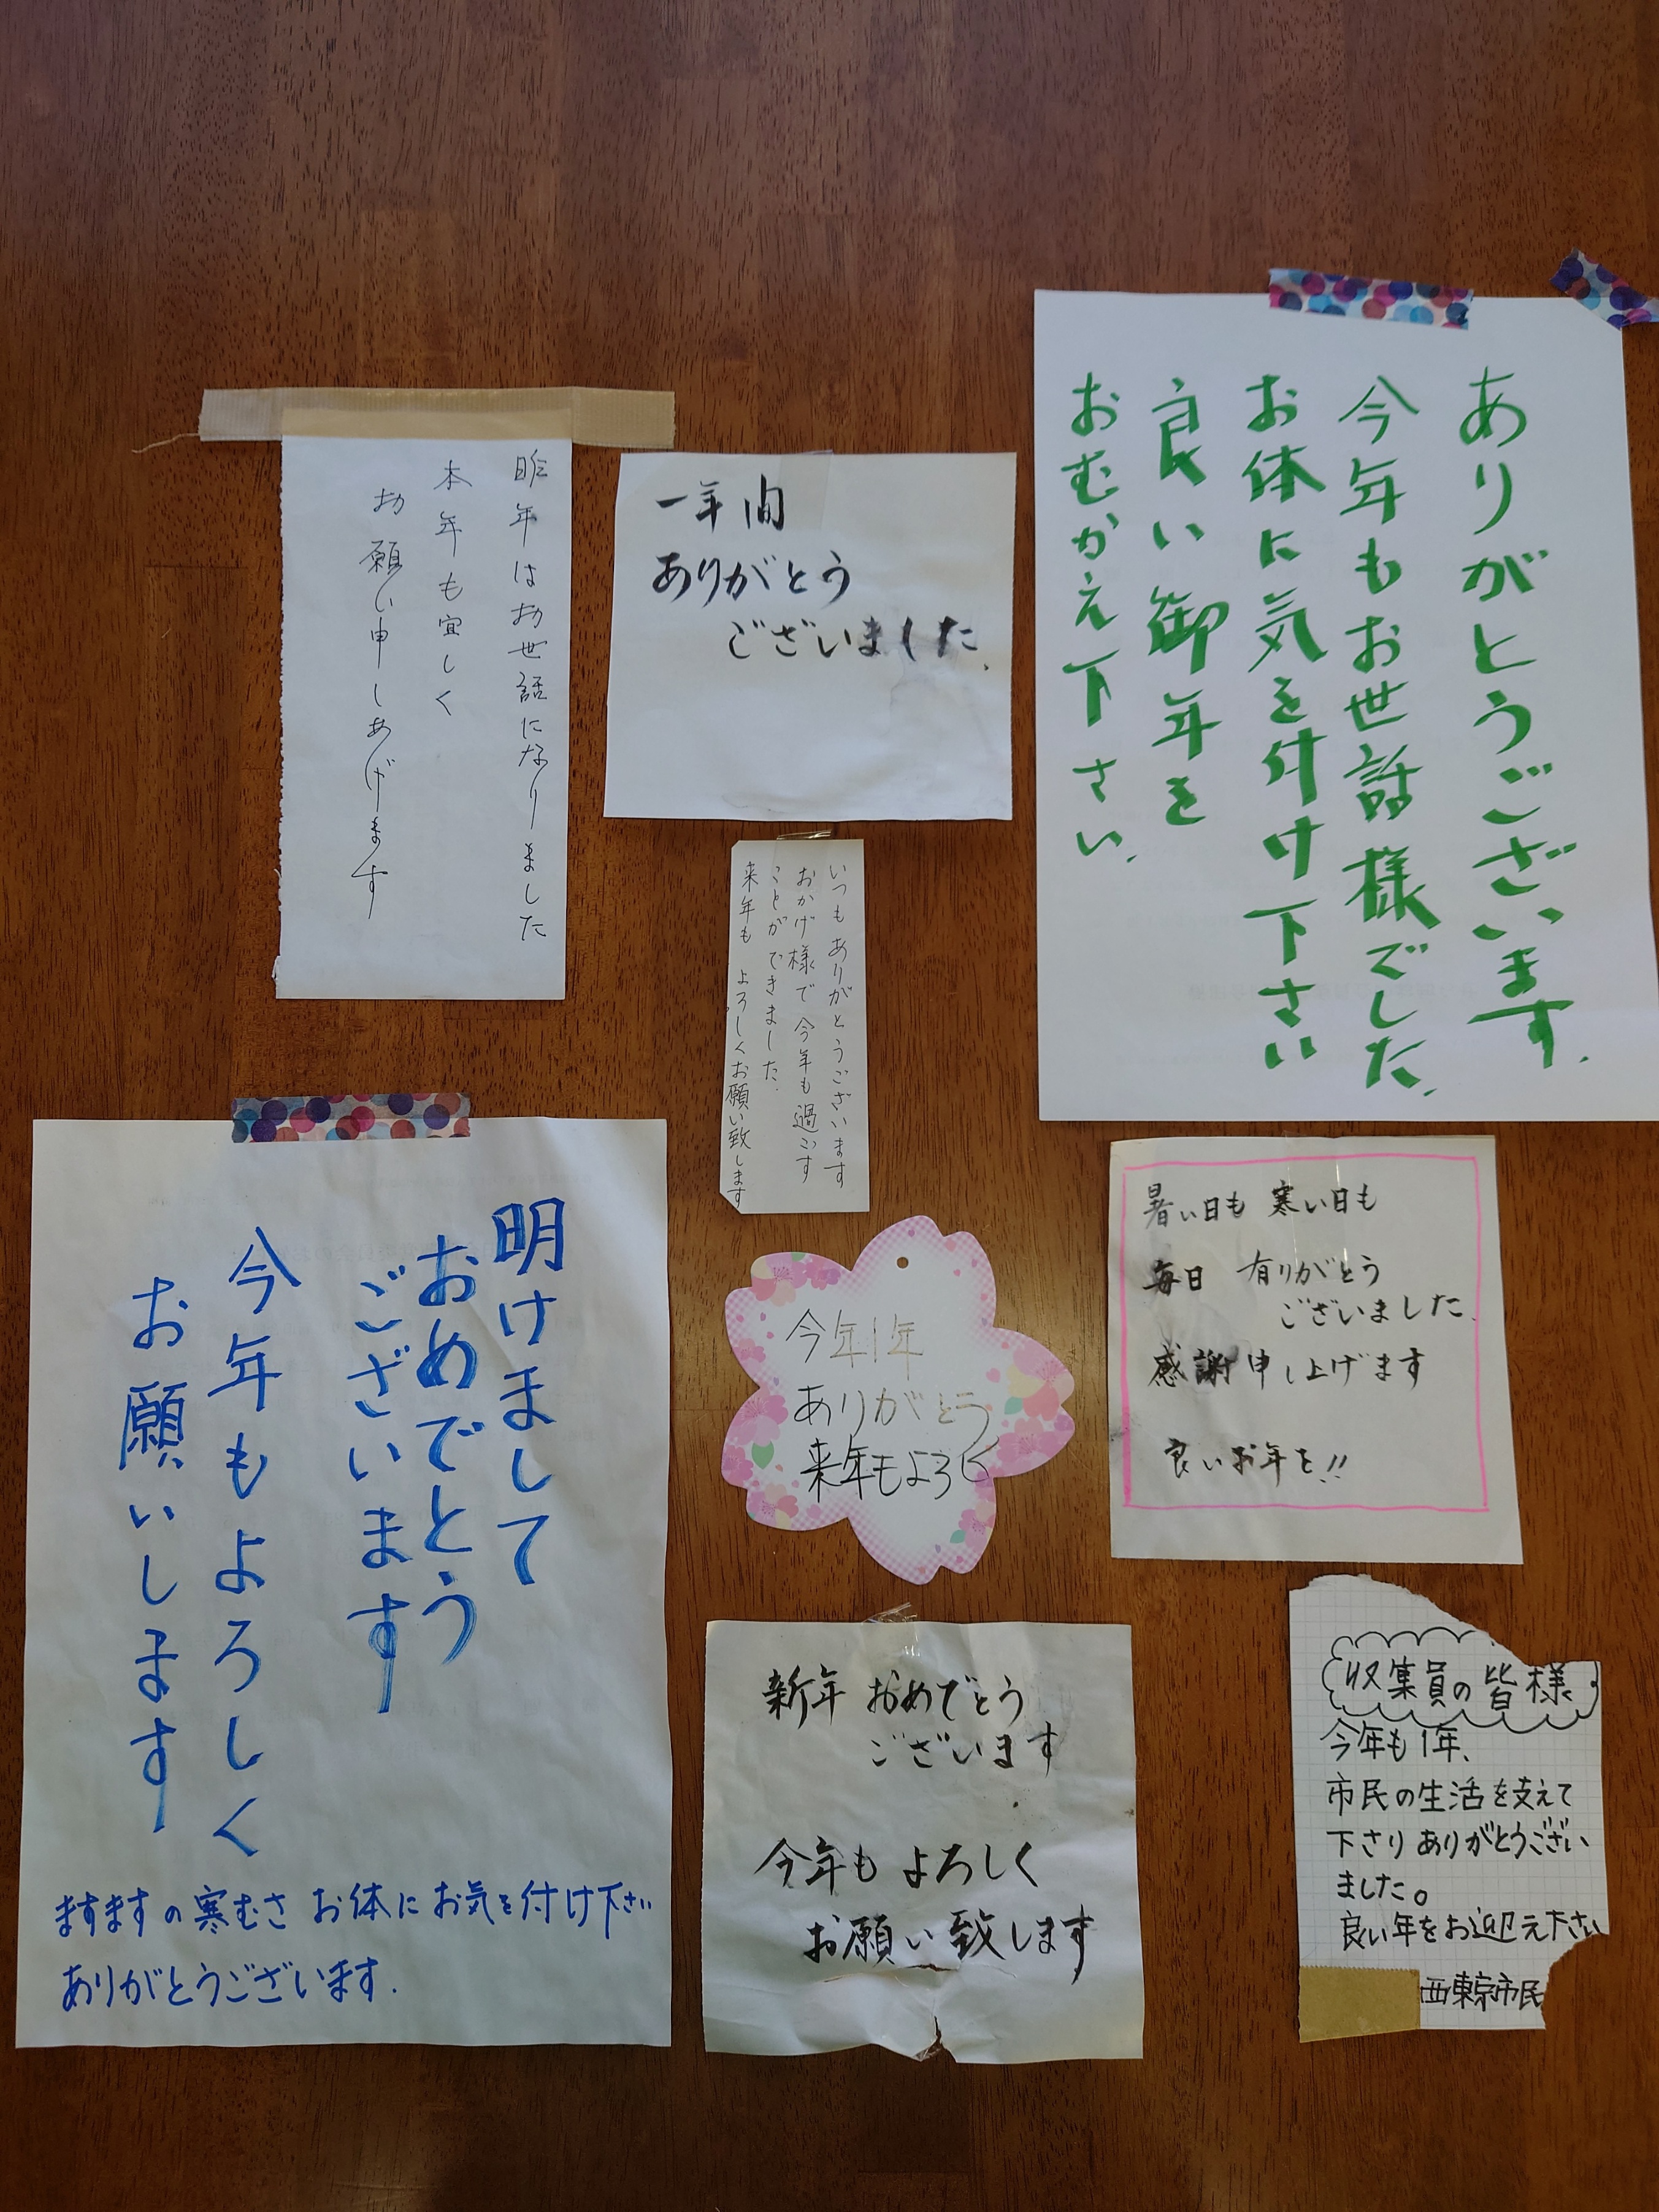 昨年はお世話になりました
本年も宜しく
お願い申しあげます
一年間
ありがとう
ございました
ありがとうございます.
今年もお世話様でした.
お体に気を付け下さい
良い御年を
おむかえ下さい.
いつもありがとうございます
おかげ様で今年も過ごす
ことができました.
来年も よろしくお願い致します
明けまして
おめでとう
ございます
今年もよろしく
お願いします
ますますの寒むさ お体にお気を付け下さい
ありがとうございます.
今年1年
ありがとう
来年もよろしく
暑い日も 寒い日も
毎日 有りがとう
ございました.
感謝申し上げます
良いお年を!!
新年 おめでとう
ございます
今年も よろしく
お願い致します
収集員の皆様
今年も1年、
市民の生活を支えて
下さりありがとうござい
ました。
良い年をお迎え下さい
西東京市民